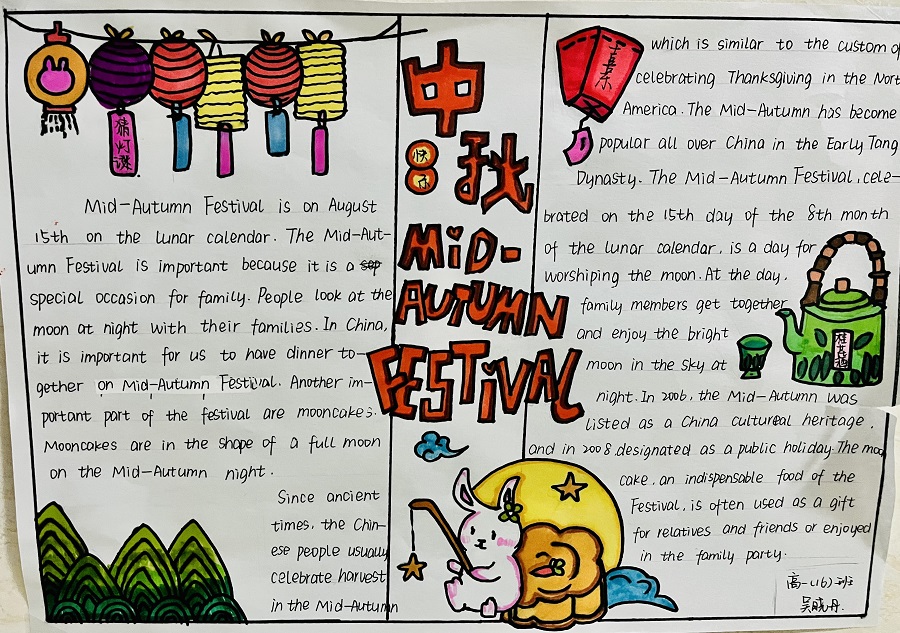 猜灯谜
Mid-Autumn Festival is on August
15th on the lunar calendar. The Mid-Aut-
umn Festival is important because it is a
special occasion for family. People look at the
moon at night with their families. In China,
it is important for us to have dinner to-
gether on Mid-Autumn Festival. Another im-
portant part of the festival are mooncakes.
Mooncakes are in the shape of a full moon
on the Mid-Autumn night.
Since ancient
times, the Chin-
ese people usually
celebrate harvest
in the Mid-Autumn
中
快
乐
秋
MiD-
AUTUMN
FESTiVAL
which is similar to the custom of
celebrating Thanksgiving in the Nort
America. The Mid-Autumn has become
popular all over China in the Early Tang
Dynasty. The Mid-Autumn Festival, cele-
brated on the 15th day of the 8th month
of the lunar calendar, is a day for
worshiping the moon. At the day,
family members get together
and enjoy the bright
moon in the sky at
night. In 2006, the Mid-Autumn was
listed as a China cultural heritage,
and in 2008 designated as a public holiday. The moo
cake, an indispensable food of the
Festival, is often used as a gift
for relatives and friends or enjoyed
in the family party.
桂花酒
高一(16)班
吴晓丹.